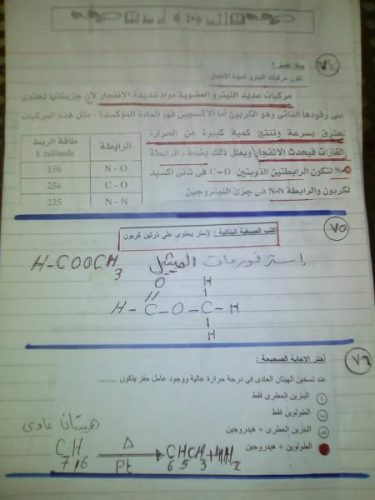 ٧٤
بماذا تفسر ؟
تكون مركبات النيترو شديدة الانفجار
مركبات عديد النيترو العضوية مواد شديدة الانفجار لأن جزيئاتها تحتوى
على وقودها الذاتى وهو الكربون أما الأكسجين فهو المادة المؤكسدة . مثل هذه المركبات
تحترق بسرعة وتنتج كمية كبيرة من الحرارة
والغازات فيحدث الانفجار ويعلل ذلك بضعف الرابطة
N-O لتكون الرابطتين القويتين C-O فى ثانى أكسيد
لكربون والرابطة N-N فى جزئ النيتروجين .
الرابطة طاقة الربط
k cal/mole
N - O 150
C - O 256
N - N 225
٧٥
اكتب الصيغة البنائية : لإستر يحتوي علي ذرتين كربون
إستر فورمات الميثيل H-COOCH3
O H
H-C-O-C-H
H
٧٦
أختر الاجابة الصحيحة :
عند تسخين الهبتان العادى فى درجة حرارة عالية ووجود عامل حفز يتكون ..........
البنزين العطرى فقط
الطولوين فقط
البنزين العطرى + هيدروجين
الطولوين + هيدروجين
هيبتان عادى
C7H16 Δ Pt C6H5CH3+4H2